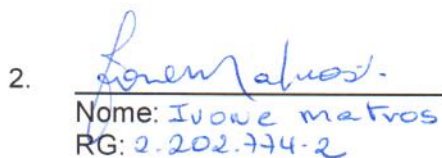 2.
Nome: Ivone Matros
RG: 2.202.774-2